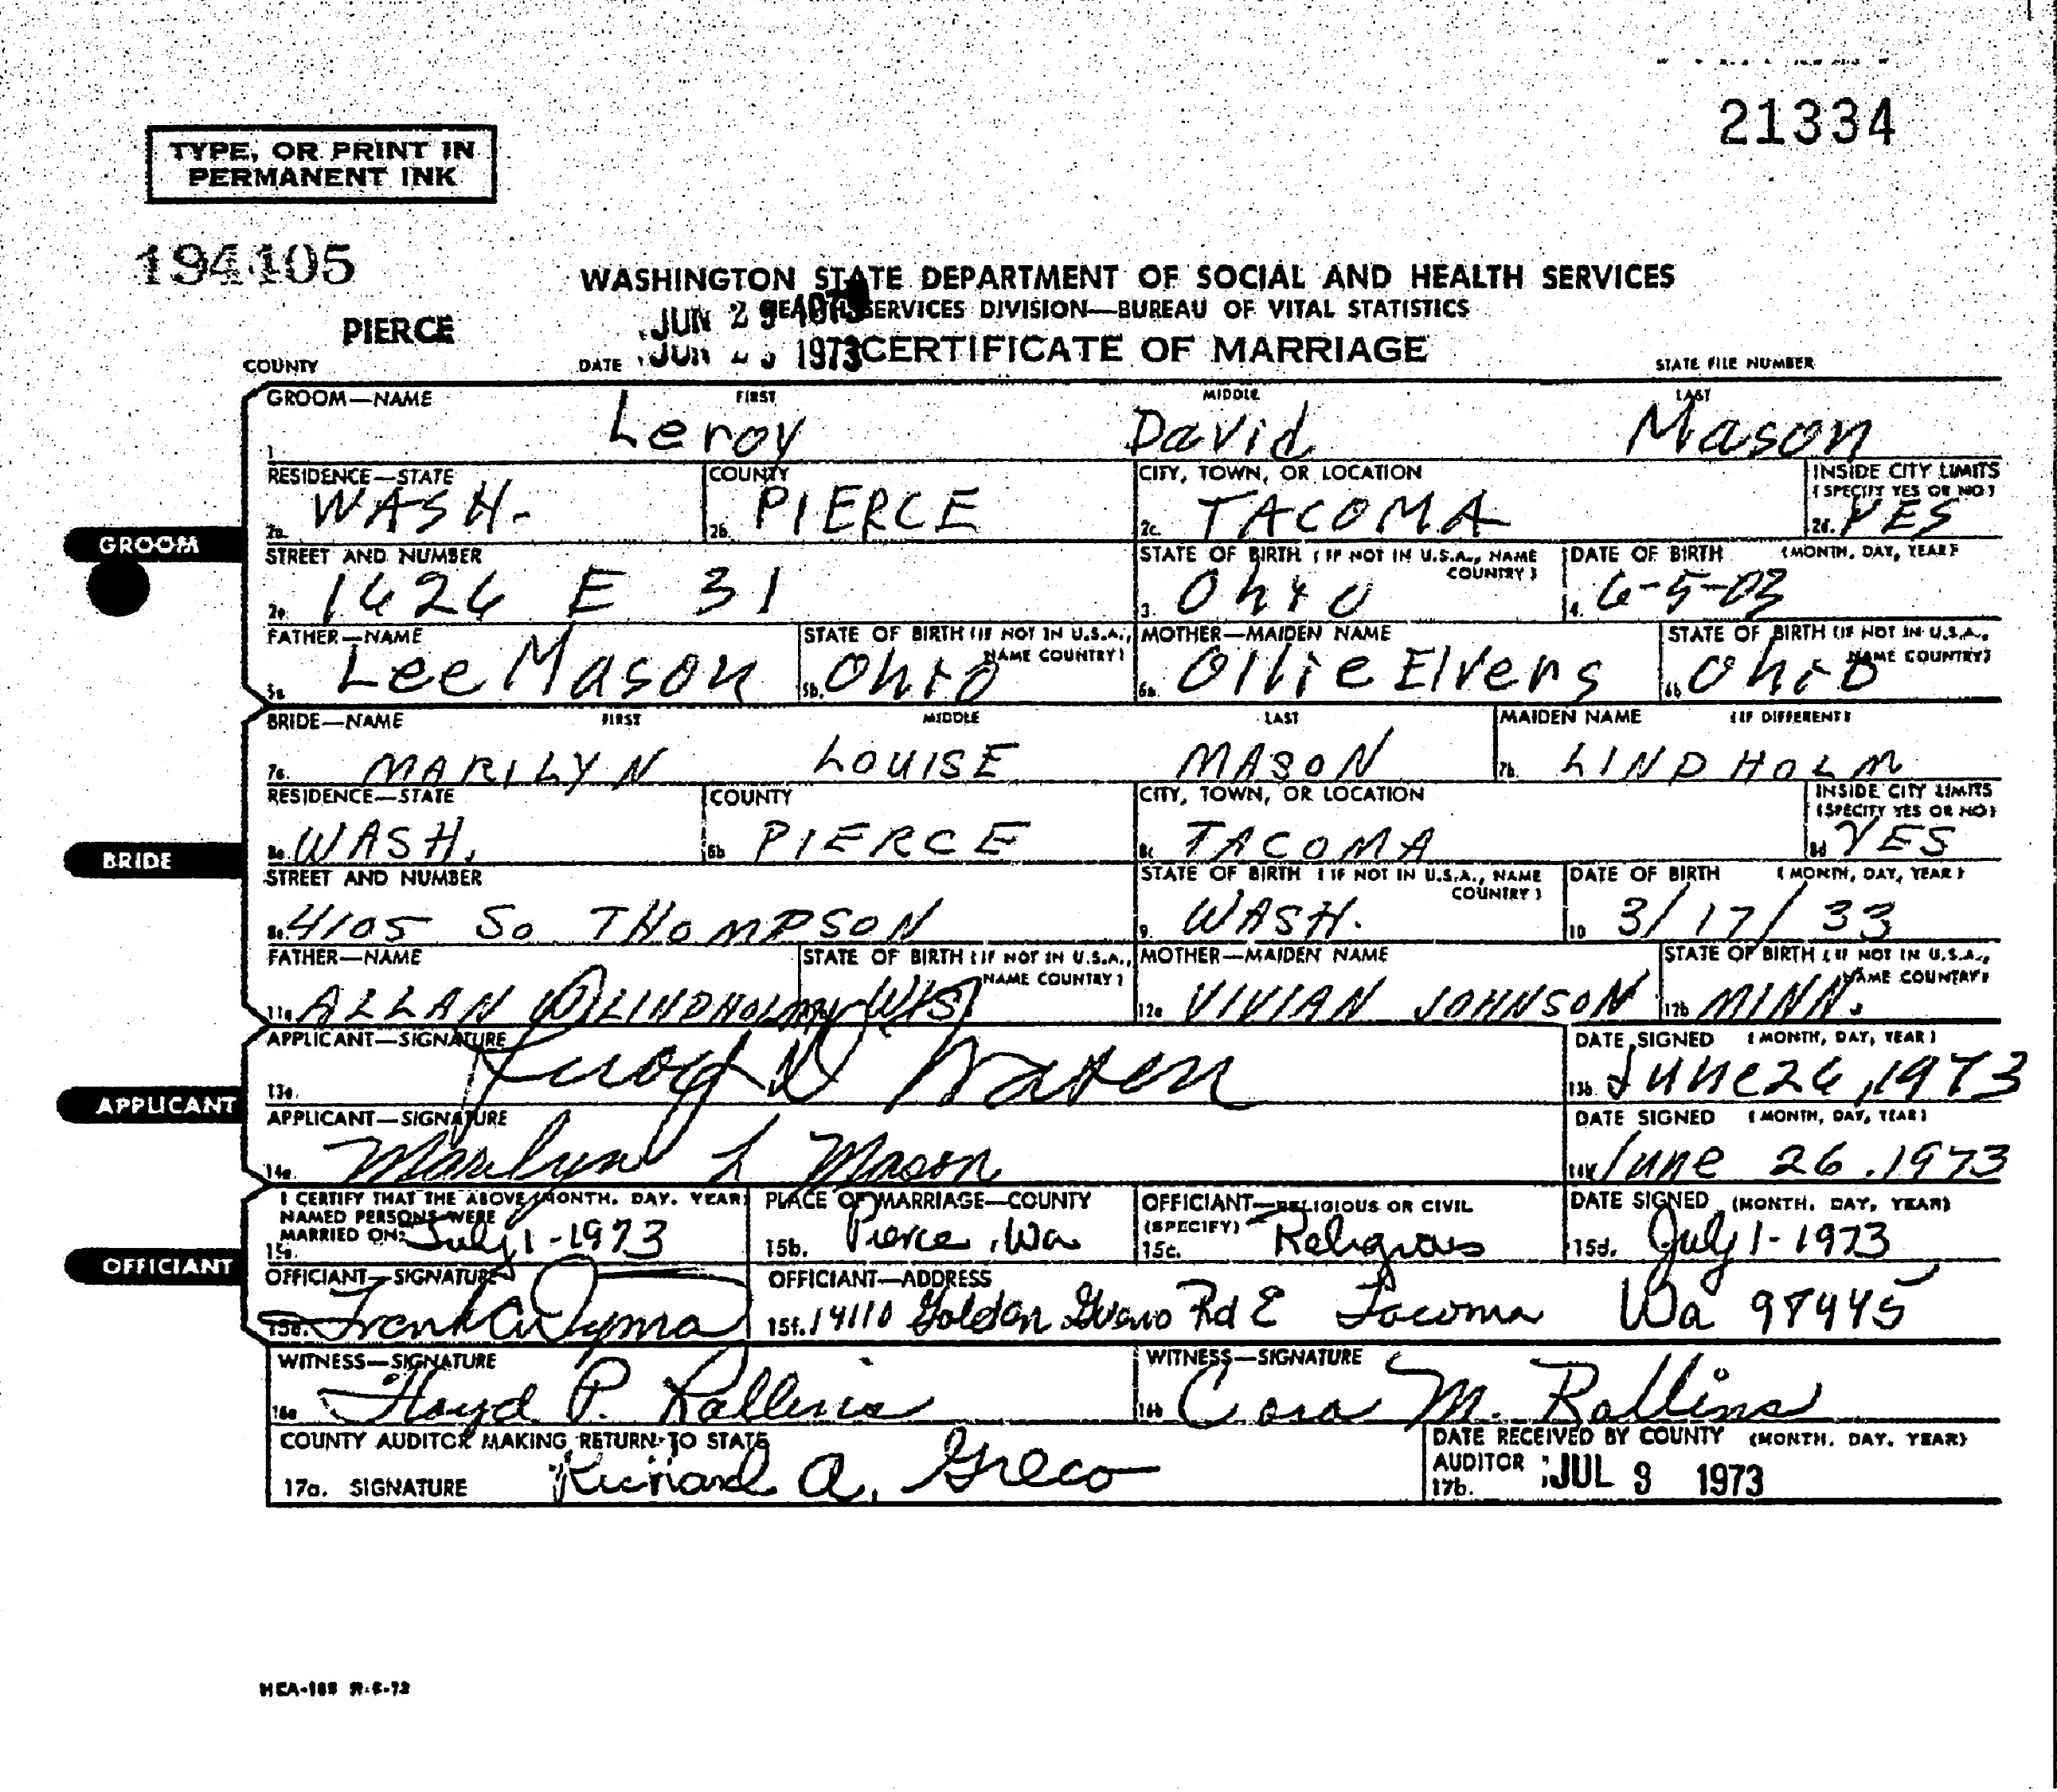 21334
TYPE, OR PRINT IN
PERMANENT INK
194105
WASHINGTON STATE DEPARTMENT OF SOCIAL AND HEALTH SERVICES
JUN 29 1973 SERVICES DIVISION—BUREAU OF VITAL STATISTICS
PIERCE
COUNTY DATE JUN 1973 CERTIFICATE OF MARRIAGE STATE FILE NUMBER
GROOM—NAME FIRST MIDDLE LAST
1 Leroy David Mason
RESIDENCE—STATE COUNTY CITY, TOWN, OR LOCATION INSIDE CITY LIMITS
(SPECIFY YES OR NO)
2a. WASH. 2b. PIERCE 2c. TACOMA 2d. YES
GROOM
STREET AND NUMBER STATE OF BIRTH (IF NOT IN U.S.A., NAME COUNTRY) DATE OF BIRTH (MONTH, DAY, YEAR)
2e. 1626 E 31 3. Ohio 4. 6-5-03
FATHER—NAME STATE OF BIRTH (IF NOT IN U.S.A., NAME COUNTRY) MOTHER—MAIDEN NAME STATE OF BIRTH (IF NOT IN U.S.A., NAME COUNTRY)
5a. Lee Mason 5b. Ohio 6a. Ollie Elvens 6b. Ohio
BRIDE—NAME FIRST MIDDLE LAST MAIDEN NAME (IF DIFFERENT)
7a. MARILYN LOUISE MASON 7b. LINDHOLM
RESIDENCE—STATE COUNTY CITY, TOWN, OR LOCATION INSIDE CITY LIMITS
(SPECIFY YES OR NO)
8a. WASH. 8b PIERCE 8c TACOMA 8d YES
BRIDE
STREET AND NUMBER STATE OF BIRTH (IF NOT IN U.S.A., NAME COUNTRY) DATE OF BIRTH (MONTH, DAY, YEAR)
8e. 4105 So. THOMPSON 9. WASH. 10 3/17/33
FATHER—NAME STATE OF BIRTH (IF NOT IN U.S.A., NAME COUNTRY) MOTHER—MAIDEN NAME STATE OF BIRTH (IF NOT IN U.S.A., NAME COUNTRY)
11a ALLAN LINDHOLM WIS 12a VIVIAN JOHNSON 12b MINN.
APPLICANT—SIGNATURE DATE SIGNED (MONTH, DAY, YEAR)
13a. Leroy D Mason 13b. June 26, 1973
APPLICANT
APPLICANT—SIGNATURE DATE SIGNED (MONTH, DAY, YEAR)
14a. Marilyn L Mason 14b June 26. 1973
I CERTIFY THAT THE ABOVE (MONTH. DAY. YEAR) PLACE OF MARRIAGE—COUNTY OFFICIANT—RELIGIOUS OR CIVIL DATE SIGNED (MONTH. DAY, YEAR)
NAMED PERSONS WERE (SPECIFY)
MARRIED ON: July 1-1973
15a. 15b. Pierce, Wa 15c. Religious 15d. July 1-1973
OFFICIANT
OFFICIANT—SIGNATURE OFFICIANT—ADDRESS
15e. 15f. 14110 Golden Rd E Tacoma Wa 98445
WITNESS—SIGNATURE WITNESS—SIGNATURE
16a Floyd P. Rollins 16b Cora M. Rollins
COUNTY AUDITOR MAKING RETURN TO STATE DATE RECEIVED BY COUNTY (MONTH. DAY. YEAR)
AUDITOR
17a. SIGNATURE Richard A. Greco 17b. JUL 9 1973